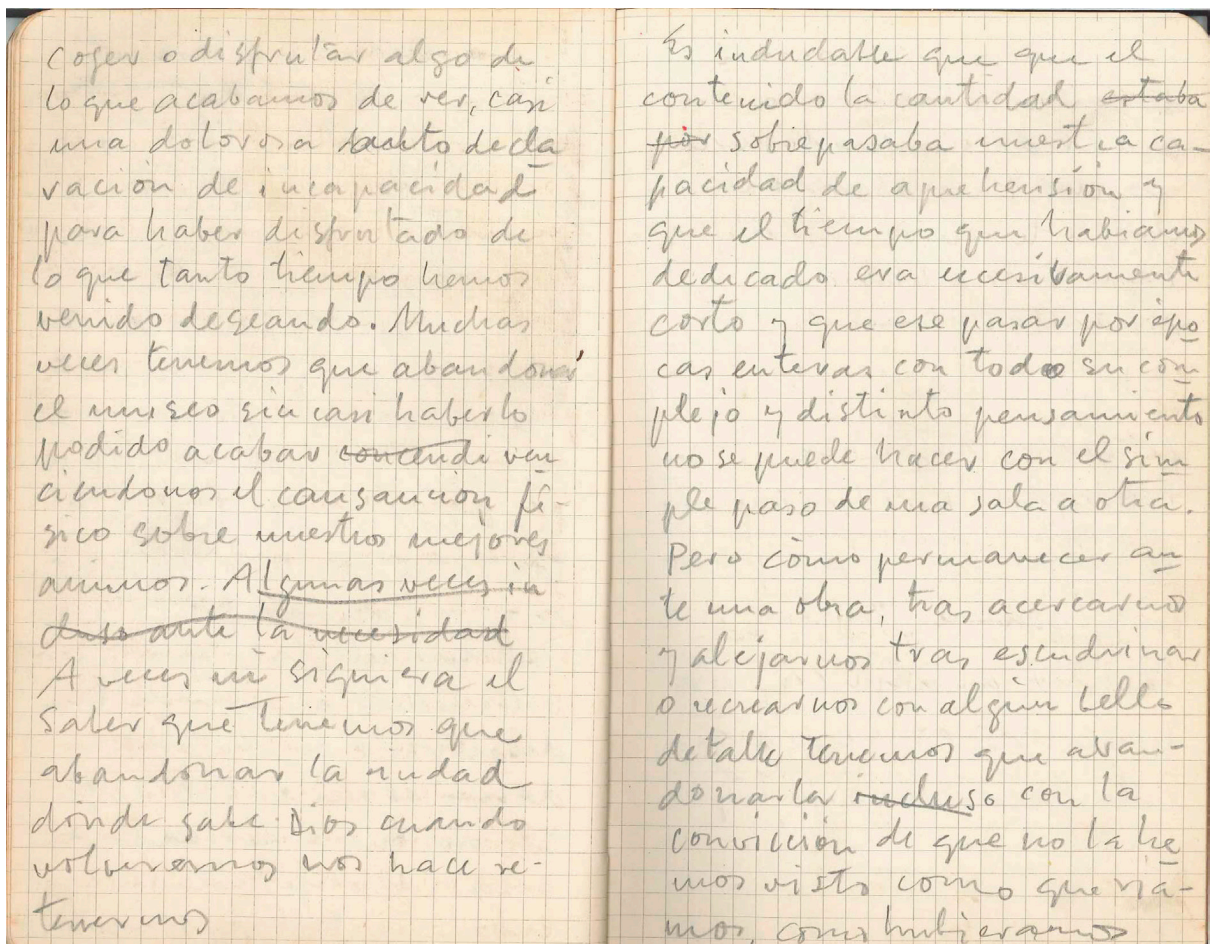 coger o disfrutar algo de
lo que acabamos de ver, casi
una dolorosa decla
ración de incapacidad
para haber disfrutado de
lo que tanto tiempo hemos
venido deseando. Muchas
veces tenemos que abandonar
el museo sin casi haberlo
podido acabar ven
ciendonos el cansancion fí-
sico sobre nuestros mejores
animos. Algunas veces in
cluso ante la necesidad
A veces ni siquiera el
saber que tenemos que
abandonar la ciudad
donde sabe Dios cuando
volveremos nos hace re-
tenernos
Es indudable que que el
contenido la cantidad estaba
por sobrepasaba nuestra ca-
pacidad de aprehensión y
que el tiempo que habiamos
dedicado era excesivamente
corto y que ese pasar por épo
cas enteras con todo su com
plejo y distinto pensamiento
no se puede hacer con el sim
ple paso de una sala a otra.
Pero cómo permanecer an
te una obra, tras acercarnos
y alejarnos tras escudrinar
o recrearnos con algun bello
detalle tenemos que aban-
donarla incluso con la
convicción de que no la he
mos visto como queria-
mos, como hubieramos